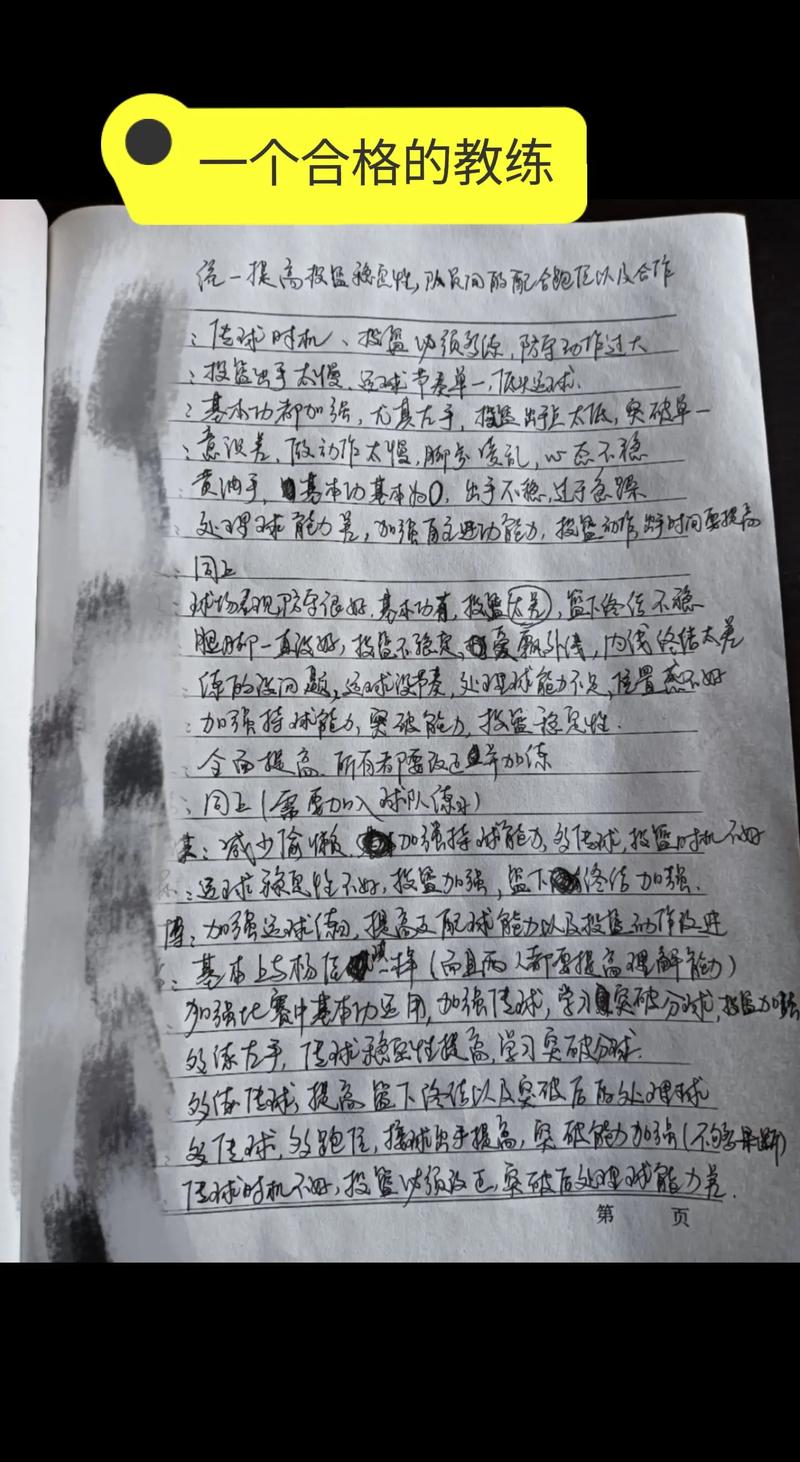 一个合格的教练
统一提高投篮稳定性,队员间的配合跑位以及合作
:传球时机、投篮必须多练,防守动作过大
:投篮出手太慢,运球节奏单一,低头运球.
:基本功都加强,尤其左手,投篮出手点太低,突破单一
:意识差,做动作太慢,脚步凌乱,心态不稳
黄油手,基本功基本为0,出手不稳,过于急躁
处理球能力差,加强自主进功能力,投篮动作,出手时间要提高
:同上
:球场表现防守很好,基本功有,投篮太差,篮下终结不稳
腿脚一直没好,投篮不稳定,爱飘外线,内线终结太差
练的没问题,运球没节奏,处理球能力不足,位置感不好
:加强持球能力,突破能力,投篮稳定性.
:全面提高,所有都要改进并加练
:同上(需要加入球队练习)
某:减少偷懒,加强持球能力,多传球,投篮时机不好
:运球稳定性不好,投篮加强,篮下终结加强.
博:加强运球练习,提高支配球能力以及投篮动作改进
:基本上与杨信一样(而且两人都要提高理解能力)
加强比赛中基本功运用,加强传球,学习突破分球,投篮加强
多练左手,传球稳定性提高,学习突破分球.
多练传球,提高篮下终结以及突破后的处理球
多传球,多跑位,接球出手提高,突破能力加强(不够果断)
传球时机不好,投篮必须改正,突破后处理球能力差.
第 页